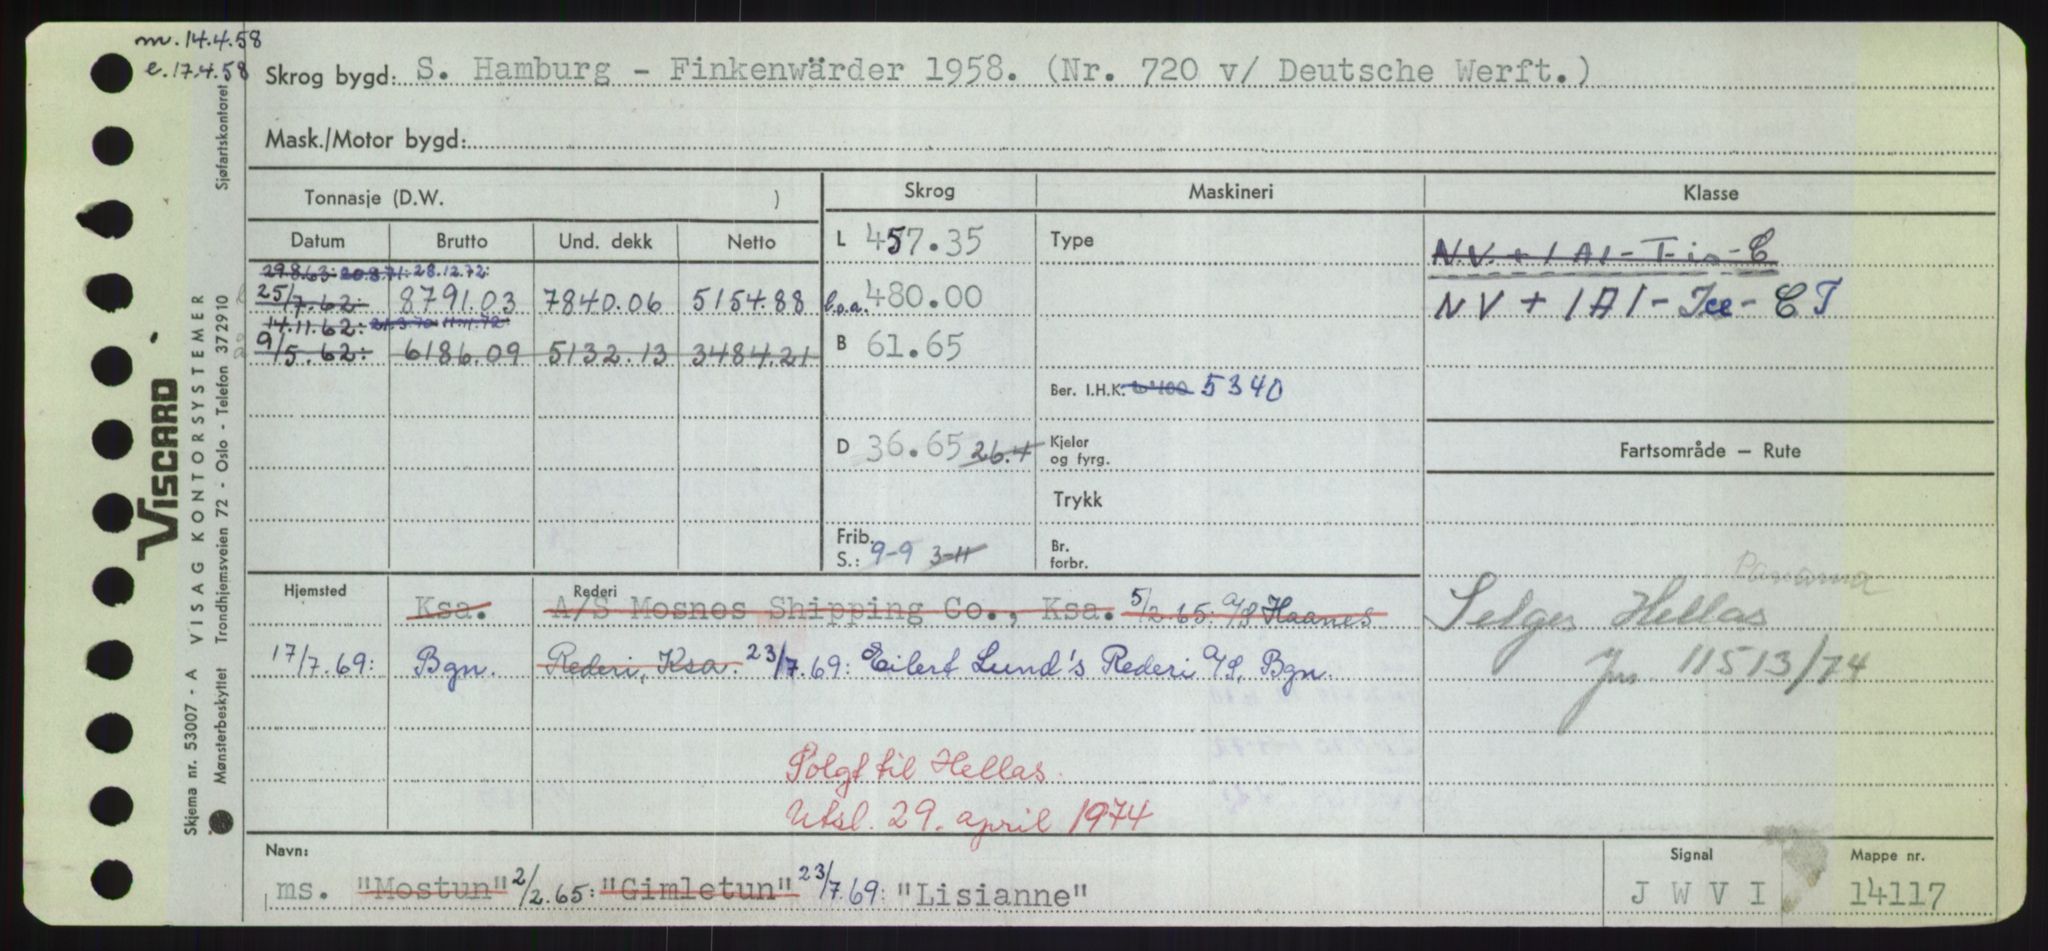 m. 14.4.58
e. 17.4.58
Skrog bygd: S. Hamburg - Finkenwärder 1958. (Nr. 720 v/ Deutsche Werft.)
Mask./Motor bygd:
Tonnasje (D.W. ) Skrog Maskineri Klasse
Datum Brutto Und. dekk Netto L 457.35 Type NV + 1A1 - T-is-C
29.8.63: 20.8.71: 28.12.72:
25/7.62: 8791.03 7840.06 5154.88 l.o.a. 480.00 NV + 1A1 - Ice - C T
14.11.62: 21.3.70 11.11.72
9/5.62: 6186.09 5132.13 3484.21 B 61.65
Ber. I.H.K. 6400 5340
D 36.65 26.4 Kjeler og fyrg. Fartsområde — Rute
Trykk
Frib. S.: 9-9 3-11 Br. forbr.
Panama
Hjemsted Rederi
Ksa. A/S Mosnes Shipping Co., Ksa. 5/2.65: A/S Haanes Selges Hellas
17/7.69: Bgn. Rederi, Ksa. 23/7.69: Eilert Lund's Rederi A/S, Bgn. Jnr. 11513/74
Solgt til Hellas.
Utsl. 29. april 1974
Navn: Signal Mappe nr.
ms. "Mostun" 2/2.65: "Gimletun" 23/7.69: "Lisianne" J W V I 14117
VISCARD
Skjema nr. 53007 - A VISAG KONTORSYSTEMER
Mønsterbeskyttet Trondhjemsveien 72 - Oslo - Telefon 372910 Sjøfartskontoret